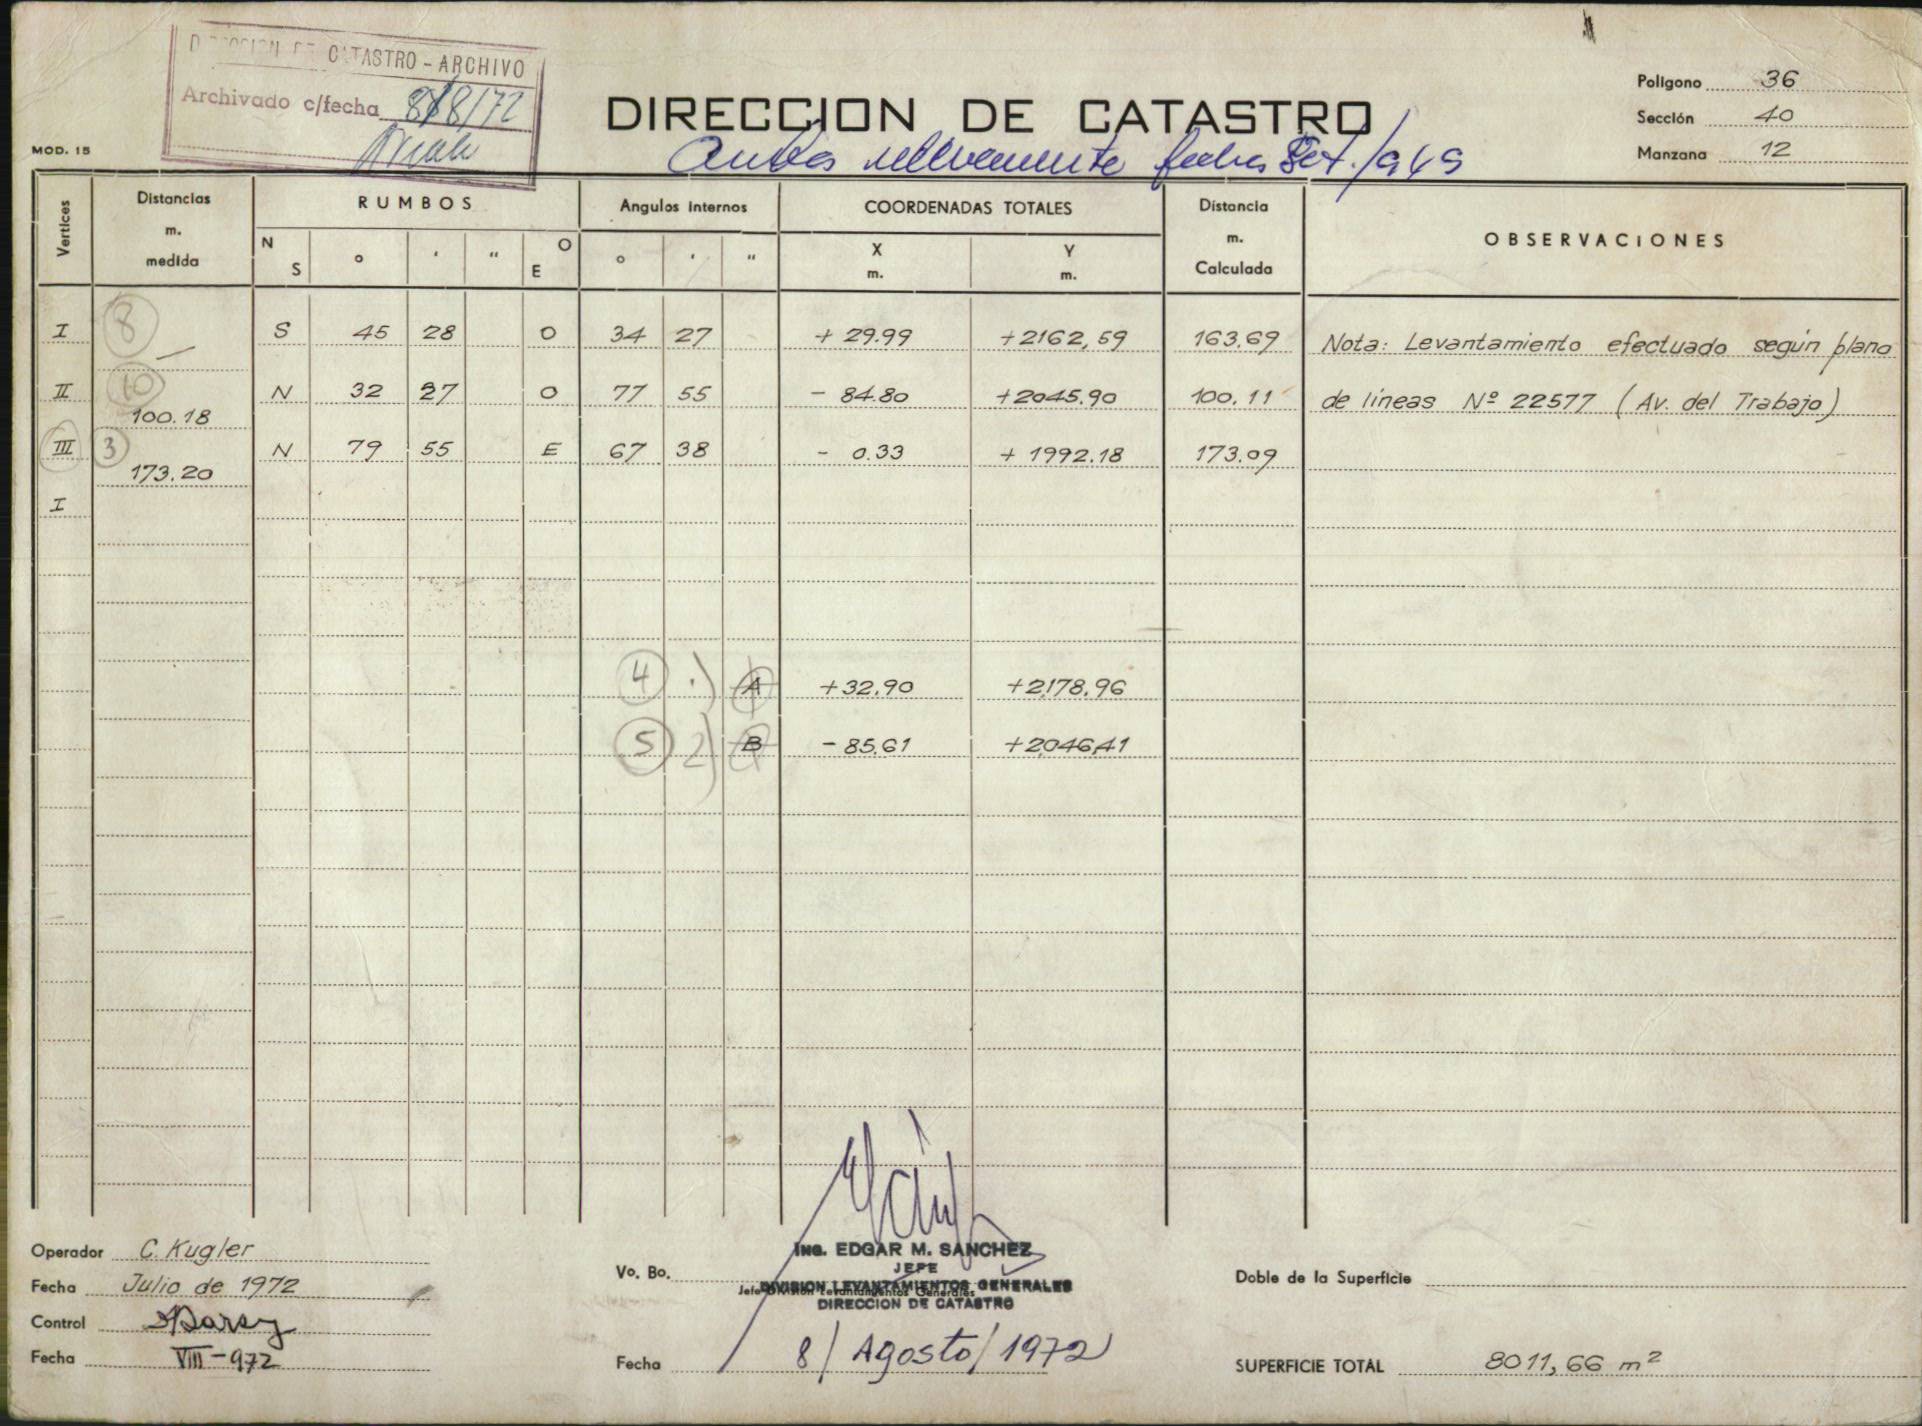 DIRECCION DE CATASTRO - ARCHIVO
Archivado c/fecha 8/8/72
MOD. 15
DIRECCION DE CATASTRO
Polígono 36
Sección 40
Manzana 12
Vertices
Distancias m. medida
RUMBOS
N S o ' " O E
Angulos Internos
o ' "
COORDENADAS TOTALES
X m.
Y m.
Distancia m. Calculada
OBSERVACIONES
8
I S 45 28 O 34 27 + 29.99 +2162,59 163.69 Nota: Levantamiento efectuado según plano
10
II N 32 27 O 77 55 - 84.80 +2045.90 100.11 de líneas Nº 22577 (Av. del Trabajo)
100.18
III 3 N 79 55 E 67 38 - 0.33 + 1992.18 173.09
173.20
I
4 1) A +32.90 +2178.96
5 2) B -85.61 +2046,41
Operador C. Kugler
Fecha Julio de 1972
Control
Fecha VIII-972
Vo. Bo.
Ing. EDGAR M. SANCHEZ
JEFE
DIVISION LEVANTAMIENTOS GENERALES
Jefe División Levantamientos Generales
DIRECCION DE CATASTRO
Fecha 8/Agosto/1972
Doble de la Superficie
SUPERFICIE TOTAL 8011,66 m²